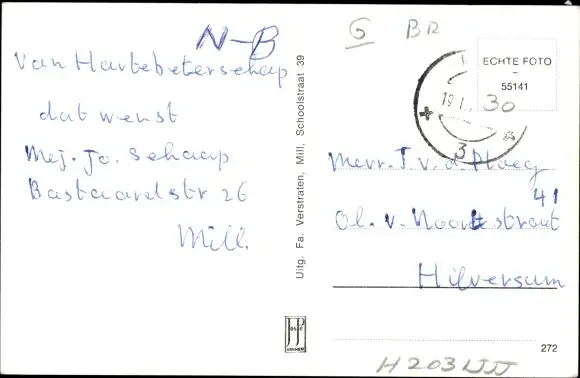 N-B
Van Harte beterschap
dat wenst
Mej. Jo. Schaap
Bastaardstr 26
Mill.
Uitg. Fa. Verstraten, Mill, Schoolstraat 39
G BR
ECHTE FOTO
-
55141
19.1.
30
3
Mevr. T. v. d. Ploeg
41
Ol. v. Noortstraat
Hilversum
272